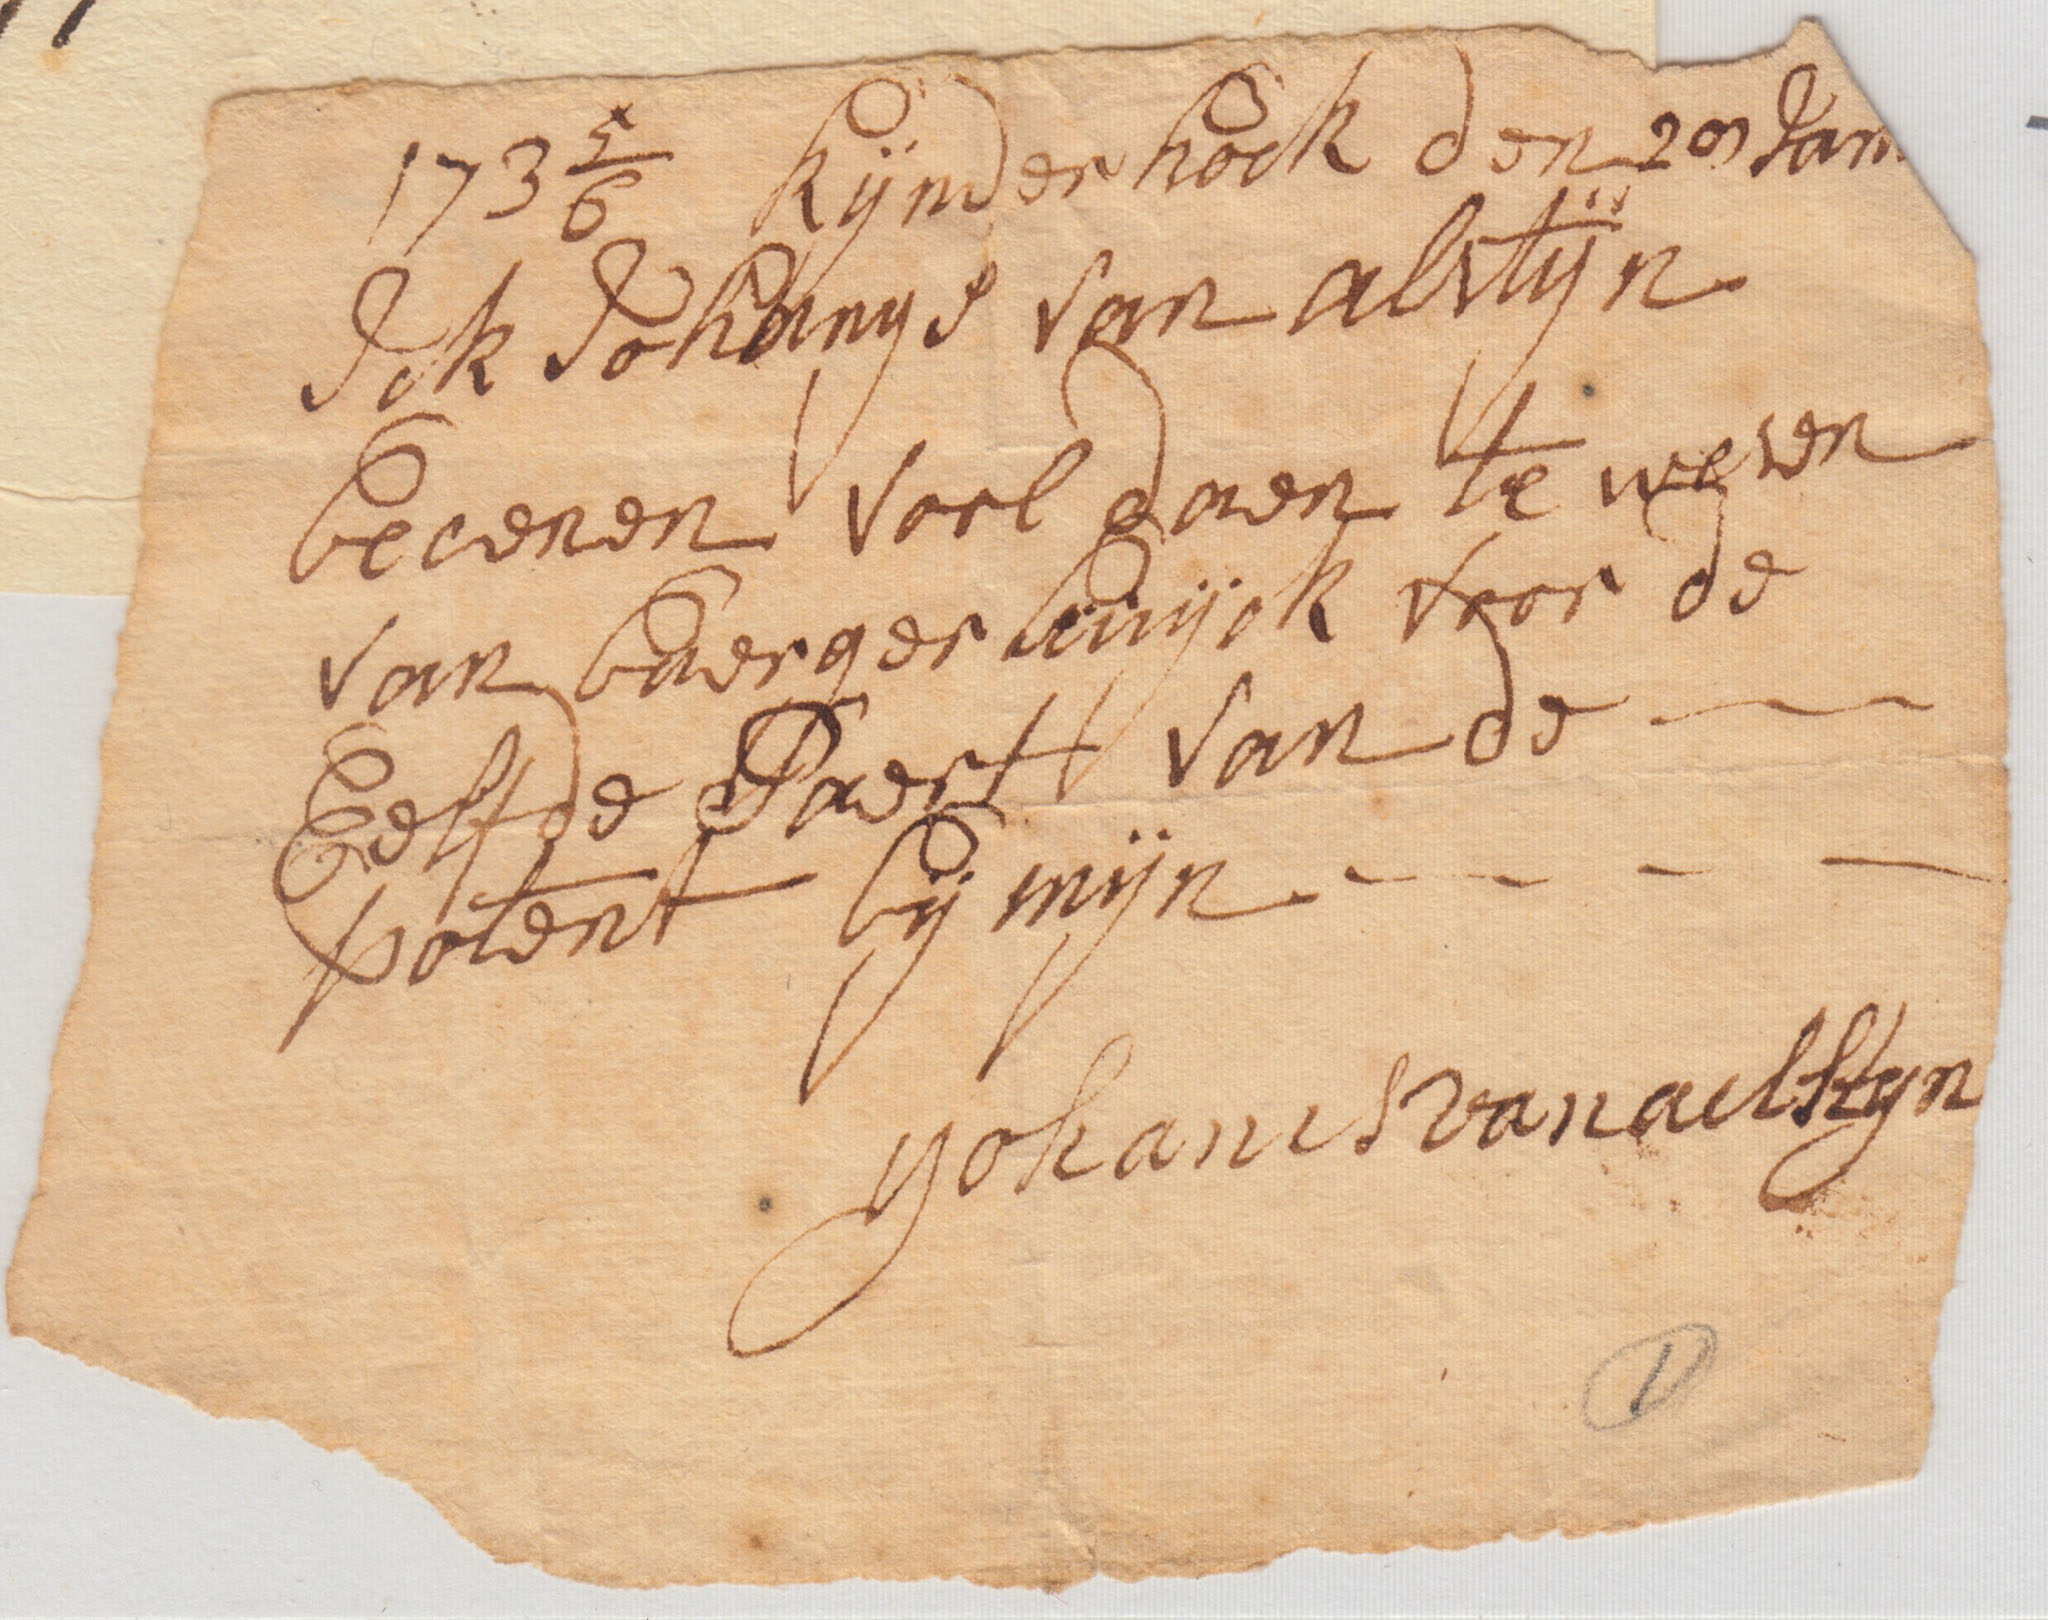 173 5/6 kijnderhock den 20 Jan
Ick Johanys van alstijn
becenen vorl daen te wesen
van baerger huijck voor de
Eelfde Paert van de
potent bij mijn
yohanis van aelstyn
1